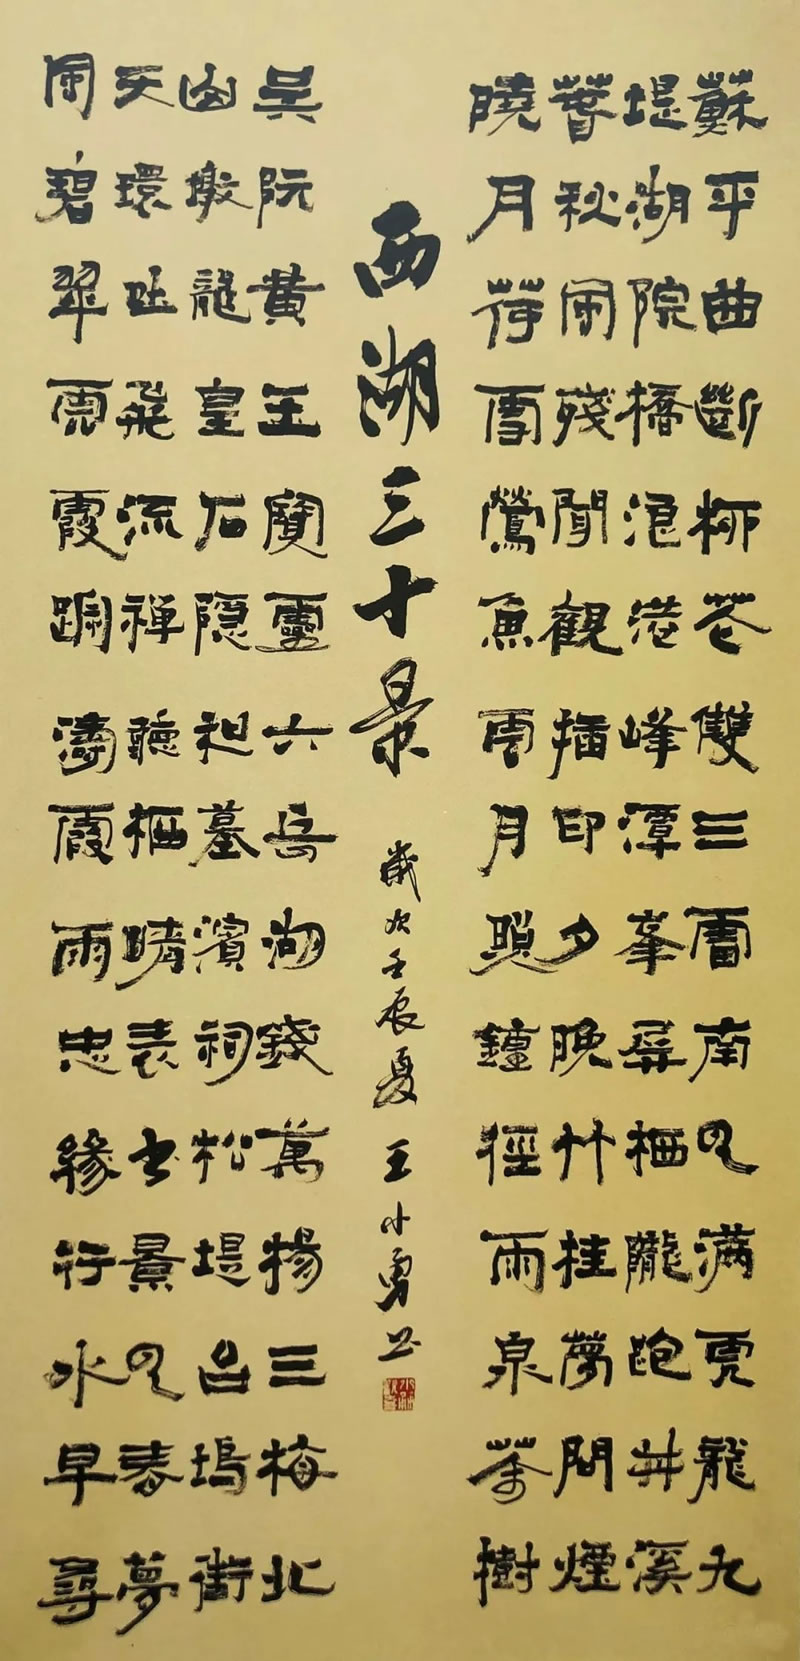 蘇堤春曉
平湖秋月
曲院風荷
斷橋殘雪
柳浪聞鶯
花港觀魚
雙峰插雲
三潭印月
雷峯夕照
南屏晚鐘
云栖竹徑
满隴桂雨
虎跑夢泉
龍井問茶
九溪煙樹
西湖三十景
歲次壬辰夏 王小勇書
吴山天風
阮墩環碧
黄龍吐翠
玉皇飛雲
寶石流霞
靈隐禅踪
六和聽濤
岳墓栖霞
湖濱晴雨
錢祠表忠
萬松書緣
楊堤景行
三台云水
梅塢春早
北街夢尋